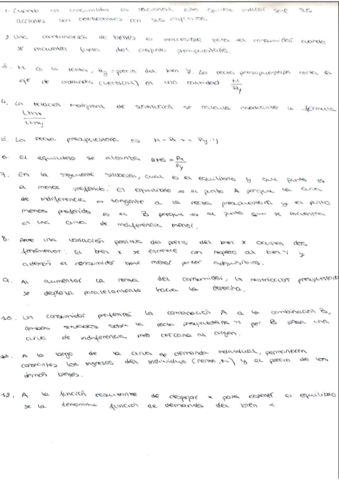 1. Cuando un consumidor es racional, esto quiere indicar que sus
acciones son coherentes con sus
2. Una combinación de bienes es inaccesible para el consumidor cuando
se encuentra fuera del conjunto presupuestario.
3. M es la renta, Py precio del bien Y. La recta presupuestaria corta el
eje de ordenadas (vertical) en una cantidad M/Py
4. La relación marginal de sustitución se calcula mediante la fórmula
UMx
UMy
5. La recta presupuestaria es M =
6. El equilibrio se alcanza RMS = Px/Py
7. En la siguiente situación, cual es el equilibrio y que punto es
el menos preferido. El equilibrio es el punto A porque la curva
de indiferencia es tangente a la recta presupuestaria y el punto
menos preferido es el B porque es el punto que se encuentra
en una curva de indiferencia menor.
8. Ante una variación positiva del precio del bien x ocurren dos
fenómenos: el bien x se encarece con respecto al bien Y y
además el consumidor tiene menor poder adquisitivo.
9. Al aumentar la renta del consumidor, la restricción presupuestaria
se desplaza paralelamente hacia la derecha.
10. Un consumidor prefiere la combinación A a la combinación B,
ambas situadas sobre la recta presupuestaria y por B pasa una
curva de indiferencia más cercana al origen.
A lo largo de la curva de demanda individual, permanecen
constantes los ingresos del individuo (renta, M) y el precio de los
demás bienes.
12. A la función resultante de despejar x para obtener el equilibrio
se la denomina función de demanda del bien x